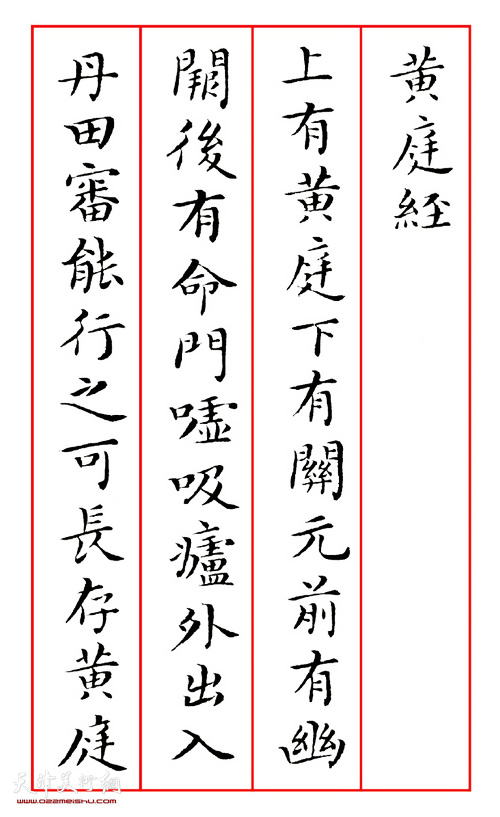 黄庭經
上有黄庭下有關元前有幽
闕後有命門嘘吸廬外出入
丹田審能行之可長存黄庭
天津美術網
www.022meishu.com